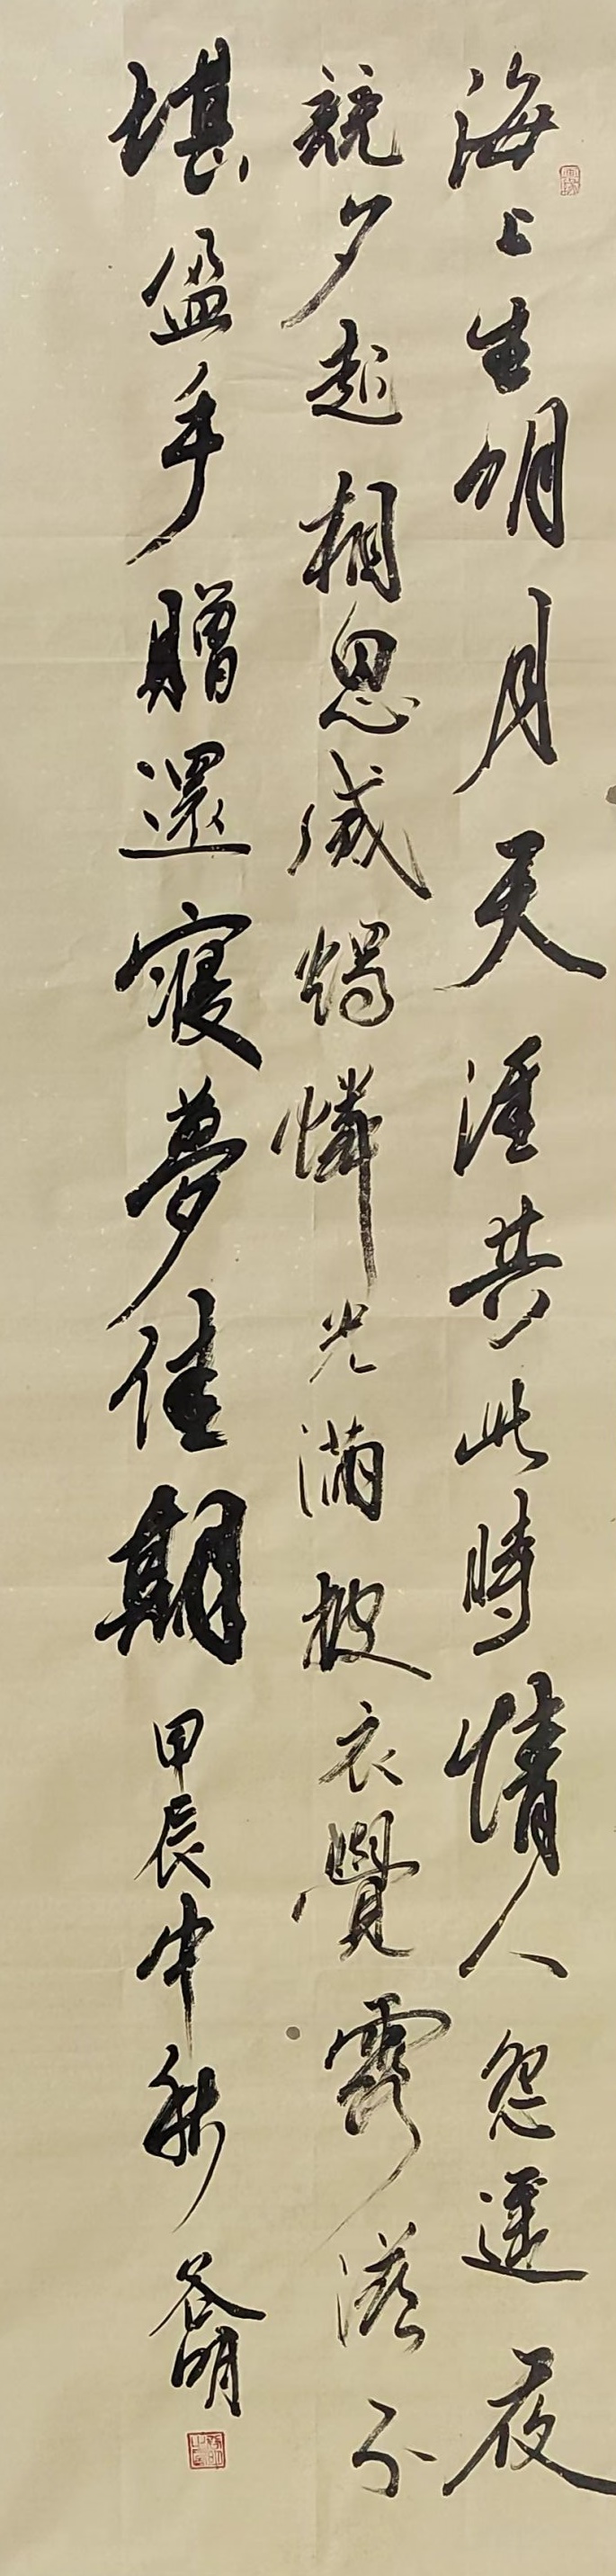 海上生明月天涯共此時情人怨遙夜
競夕起相思滅燭憐光滿披衣覺露滋不
堪盈手贈還寢夢佳期甲辰中秋